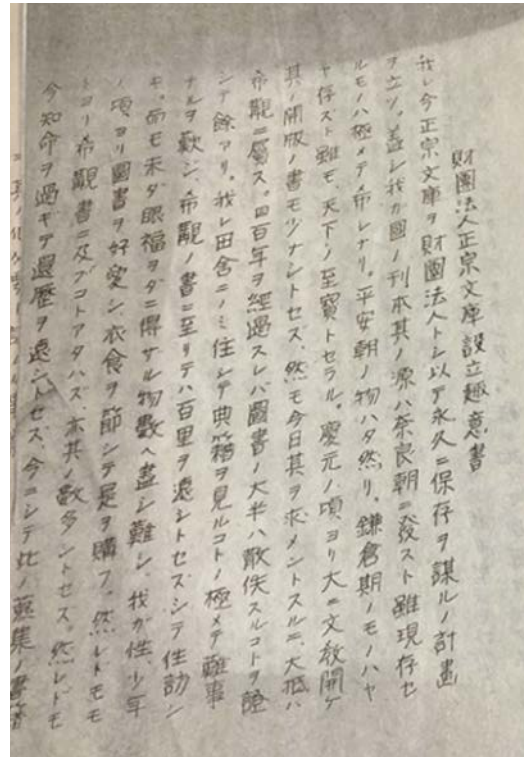 財團法人正宗文庫設立趣意書
我レ今正宗文庫ヲ財團法人トシ以テ永久ニ保存ヲ謀ルノ計畫
ヲ立ツ。蓋シ我ガ國ノ刊本其ノ源ハ奈良朝ニ發スト雖現存セ
ルモノハ極メテ希レナリ。平安朝ノ物ハタ然リ。鎌倉期ノモノハヤ
ヤ存スト雖モ、天下ノ至寶トセラル。慶元ノ頃ヨリ大ニ文教開ケ
其ノ開版ノ書モ少ナシトセズ、然モ今日其ヲ求メントスルニ、大抵ハ
希覯ニ屬ス。四百年ヲ經過スレバ圖書ノ大半ハ散佚スルコトヲ證
シテ餘アリ。我レ田舎ニノミ住シテ典籍ヲ見ルコトノ極メテ難事
ナルヲ歎ジ、希覯ノ書ニ至リテハ百里ヲ遠シトセズシテ往訪シ
キ。而モ未ダ眼福ヲダニ得ザル物數ヘ盡シ難シ。我ガ性、少年
ノ頃ヨリ圖書ヲ好愛シ、衣食ヲ節シテ是ヲ購フ。然レドモモ
トヨリ希覯書ニ及ブコトアタハズ、亦其ノ數多シトセズ。然レドモ
今知命ヲ過ギテ還歴ヲ遠シトセズ、今ニシテ此ノ蒐集ノ書籍